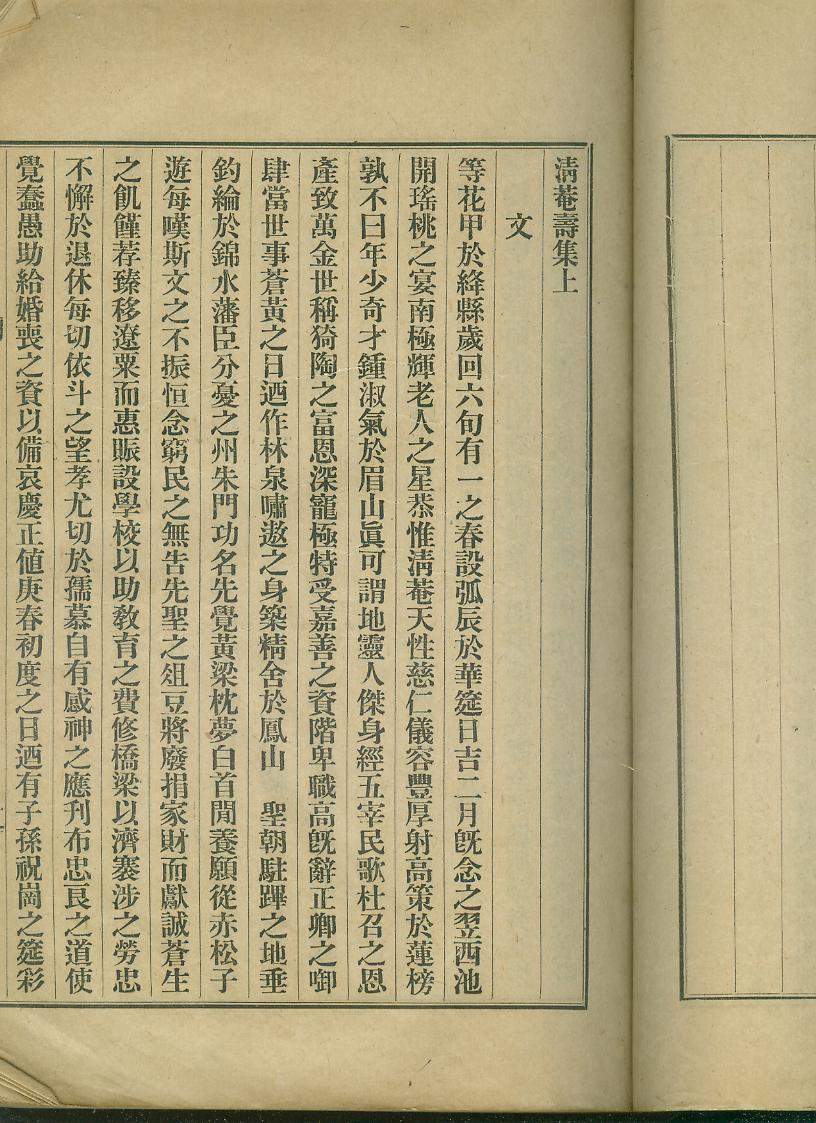 淸菴壽集上
文
等花甲於絳縣歲回六旬有一之春設弧辰於華筵日吉二月旣念之翌西池
開瑤桃之宴南極輝老人之星恭惟淸菴天性慈仁儀容豐厚射高策於蓮榜
孰不曰年少奇才鍾淑氣於眉山眞可謂地靈人傑身經五宰民歌杜召之恩
產致萬金世稱猗陶之富恩深寵極特受嘉善之資階卑職高旣辭正卿之啣
肆當世事蒼黃之日迺作林泉嘯遨之身築精舍於鳳山　聖朝駐蹕之地垂
釣綸於錦水藩臣分憂之州朱門功名先覺黃粱枕夢白首閒養願從赤松子
遊每嘆斯文之不振恒念窮民之無告先聖之俎豆將廢捐家財而獻誠蒼生
之飢饉荐臻移遼粟而惠賑設學校以助敎育之費修橋梁以濟褰涉之勞忠
不懈於退休每切依斗之望孝尤切於孺慕自有感神之應刋布忠良之道使
覺蠢愚助給婚喪之資以備哀慶正値庚春初度之日迺有子孫祝崗之筵彩